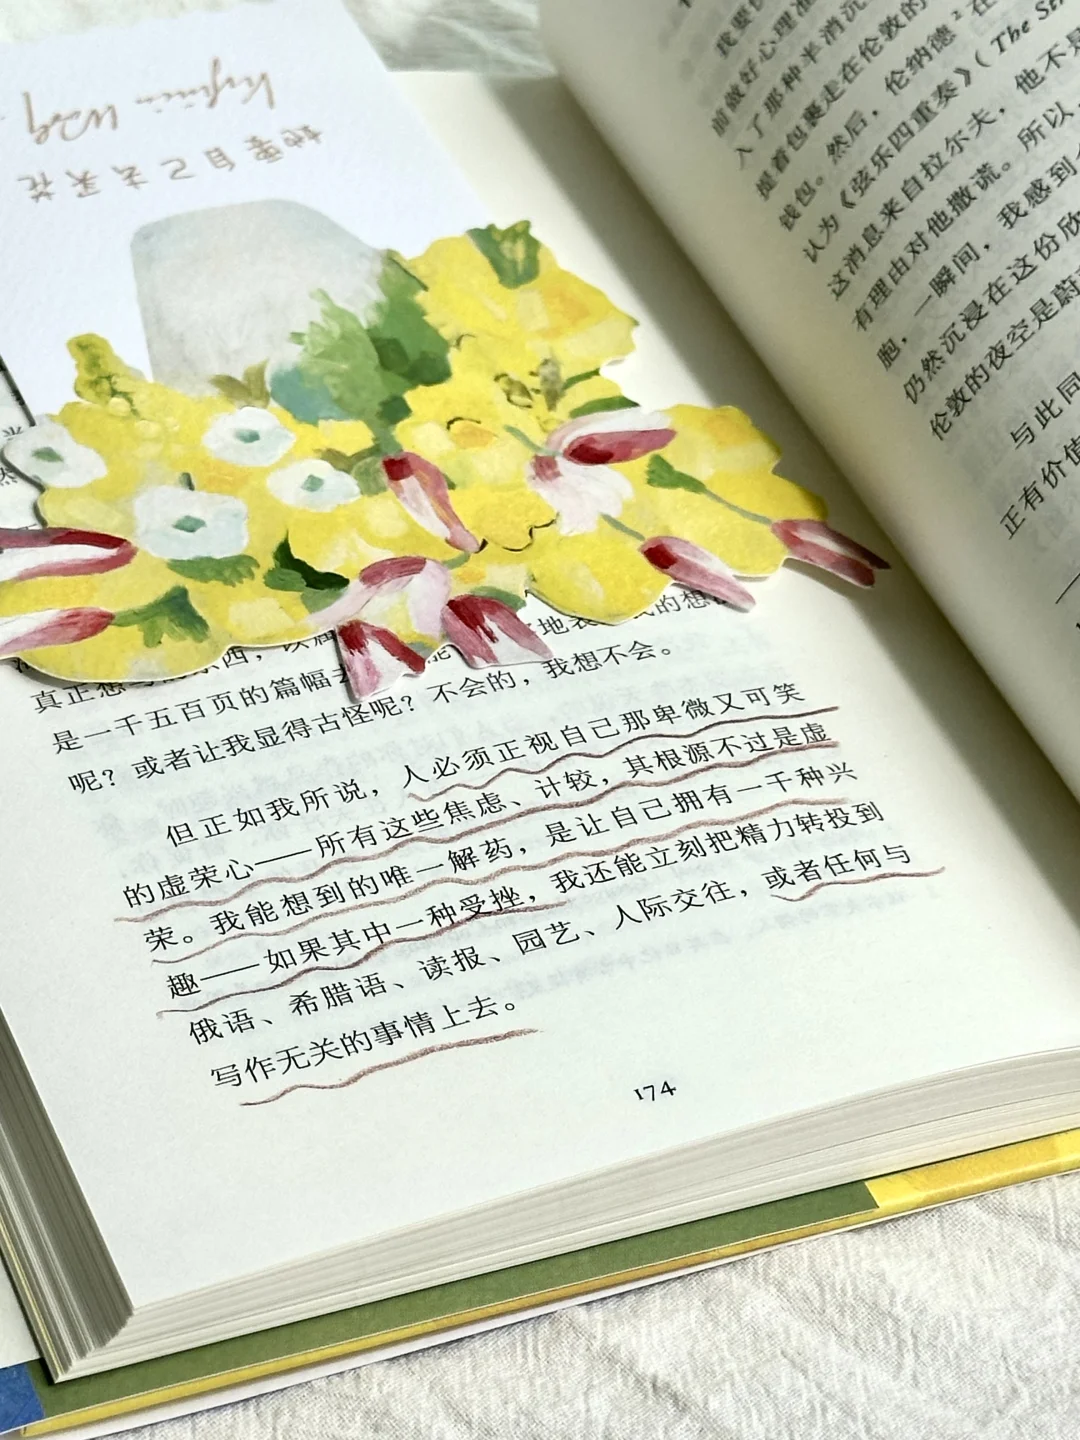 她要自己去采花
是一千五百页的篇幅
不会的，我想不会。
呢？或者让我显得古怪呢？
但正如我所说，人必须正视自己那卑微又可笑
的虚荣心——所有这些焦虑、计较，其根源不过是虚
荣。我能想到的唯一解药，是让自己拥有一千种兴
趣——如果其中一种受挫，我还能立刻把精力转投到
俄语、希腊语、读报、园艺、人际交往，或者任何与
写作无关的事情上去。
174
我要
前做好心理准
入了那种半消沉
提着包裹走在伦敦的
钱包。然后，伦纳德²在
认为《弦乐四重奏》（The St
这消息来自拉尔夫，他不是
有理由对他撒谎。所以，
胞，一瞬间，我感到
仍然沉浸在这份欣
伦敦的夜空是蔚
与此同
正有价值